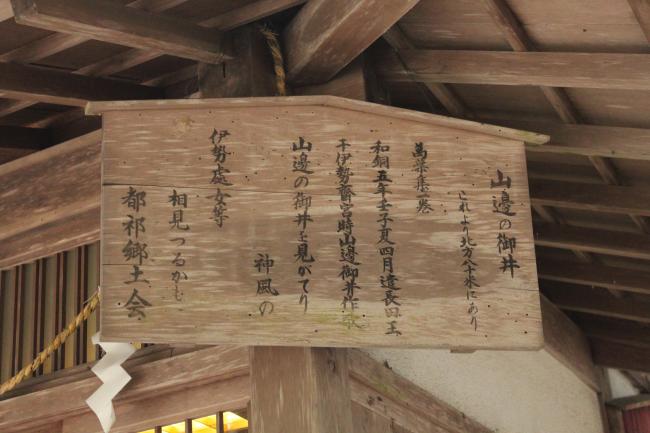 山邊の御井
これより北方八十米にあり
萬葉集一巻
和銅五年壬子夏四月遣長田王
于伊勢齋宮時山邊御井作歌
山邊の御井を見がてり
神風の
伊勢處女等
相見つるかも
都祁郷土会